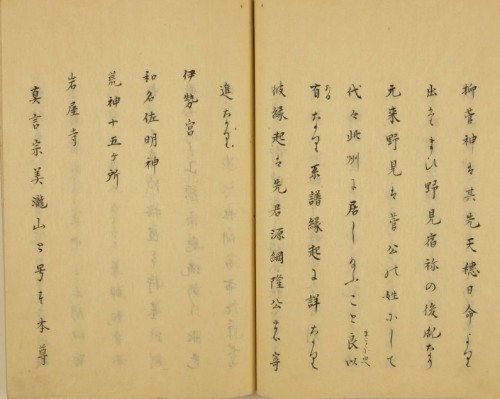 抑菅神ハ其先天穂日命より
出させ給ひ野見宿祢の後胤なり
元来野見ハ菅公の姓にして
代々此州に居し給ふこと良以
有なり系譜縁起に詳なり
彼縁起ハ先君源綱隆公
進なり
伊勢宮
和名佐明神
荒神十五ヶ所
岩屋寺
真言宗美瀧山と号す本尊